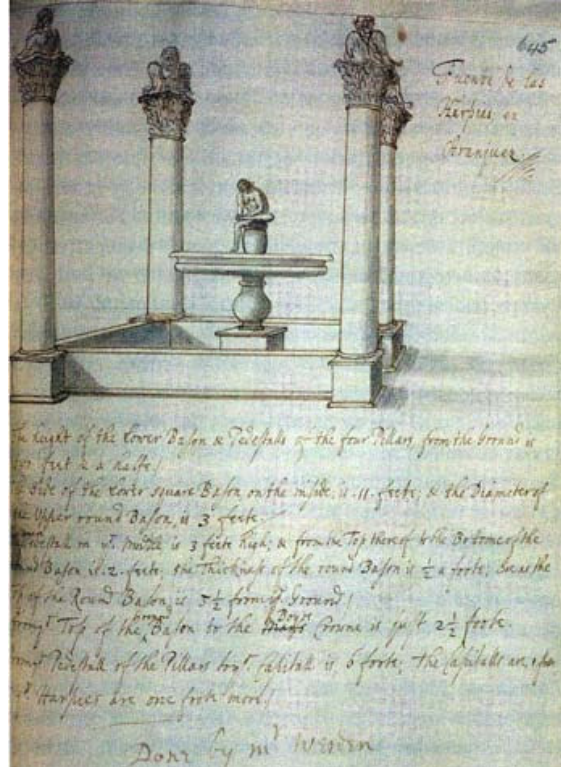 645
Fuente de las
Harpies en
Aranjuez
height of the Lower Bason & Pedestalls of the four Pillars from the Ground is
feet & a halfe
Side of the Lower square Bason on the inside, is 11 feete; & the Diameter of
Upper round Bason, is 3 feete
Pedestall in yᵉ middle is 3 feete high, & from the Top thereof to the Bottome of the
Bason is 2 feete; the Thickness of the round Bason is ½ a foote; as the
Top of the Round Bason, is 5½ from yᵉ Ground
Top of the round Bason to the Boyes Crowne is just 2½ foote
Pedestall of the Pillars to yᵉ Capitall is 6 foote; the Capitalls are 1
Harpies are one foote more
Done by mʳ Werden